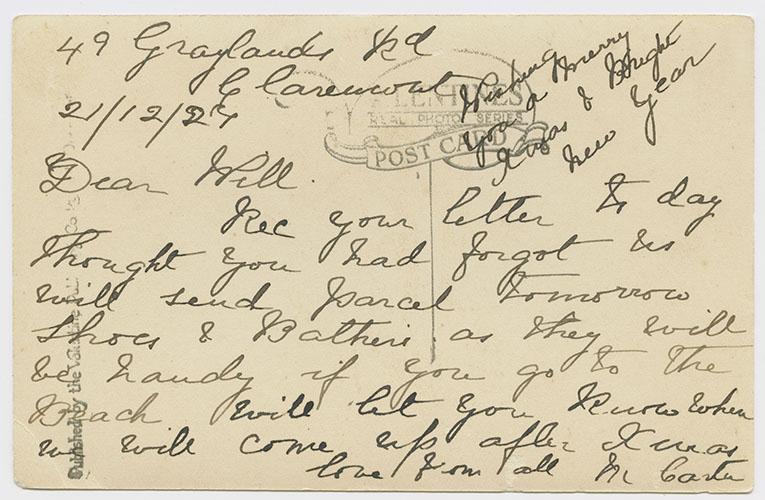 49 Graylands Rd
Claremont
21/12/27
Wishing
you a Merry
Xmas & Bright
New Year
VALENTINES
REAL PHOTO SERIES
POST CARD
Dear Will.
Rec your letter to day
Thought you had forgot us
will send parcel tomorrow
Shoes & Bathers as they will
be handy if you go to the
Beach will let you know when
we will come up after Xmas
love from all M Carter
Published by the Valentine